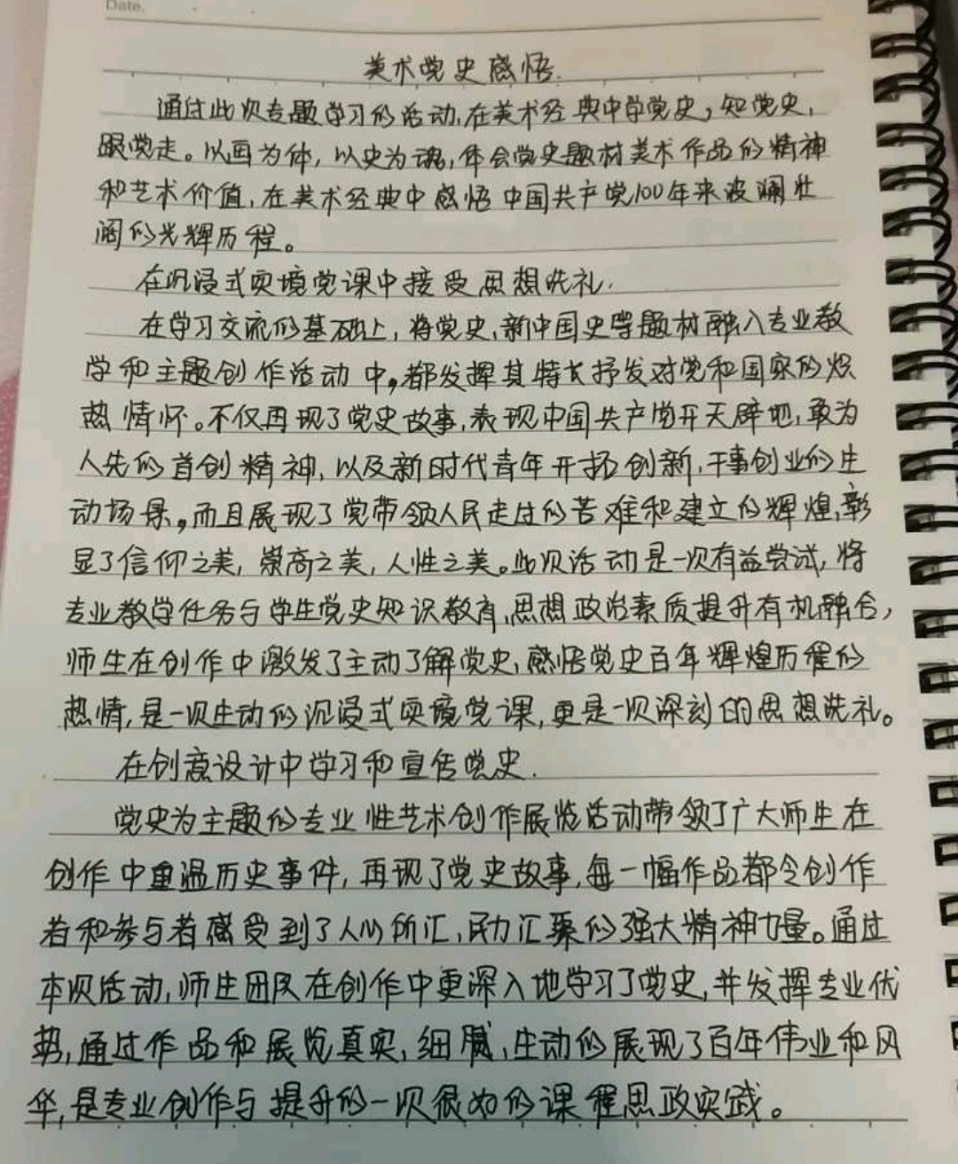 Date.
美术党史感悟.
通过此次专题学习的活动,在美术经典中学党史,知党史,
跟党走。以画为体,以史为魂,体会党史题材美术作品的精神
和艺术价值,在美术经典中感悟中国共产党100年来波澜壮
阔的光辉历程。
在沉浸式实境党课中接受思想洗礼.
在学习交流的基础上,将党史,新中国史等题材融入专业教
学和主题创作活动中,都发挥其特长抒发对党和国家的炽
热情怀。不仅再现了党史故事,表现中国共产党开天辟地,敢为
人先的首创精神,以及新时代青年开拓创新,干事创业的生
动场景,而且展现了党带领人民走过的苦难和建立的辉煌,彰
显了信仰之美,崇高之美,人性之美。此次活动是一次有益尝试,将
专业教学任务与学生党史知识教育,思想政治素质提升有机融合,
师生在创作中激发了主动了解党史,感悟党史百年辉煌历程的
热情,是一次生动的沉浸式实境党课,更是一次深刻的思想洗礼。
在创意设计中学习和宣传党史.
党史为主题的专业性艺术创作展览活动带领了广大师生在
创作中重温历史事件,再现了党史故事,每一幅作品都令创作
者和参与者感受到了人心所汇,民力汇聚的强大精神力量。通过
本次活动,师生团队在创作中更深入地学习了党史,并发挥专业优
势,通过作品和展览真实,细腻,生动的展现了百年伟业和风
华,是专业创作与提升的一次很好的课程思政实践。